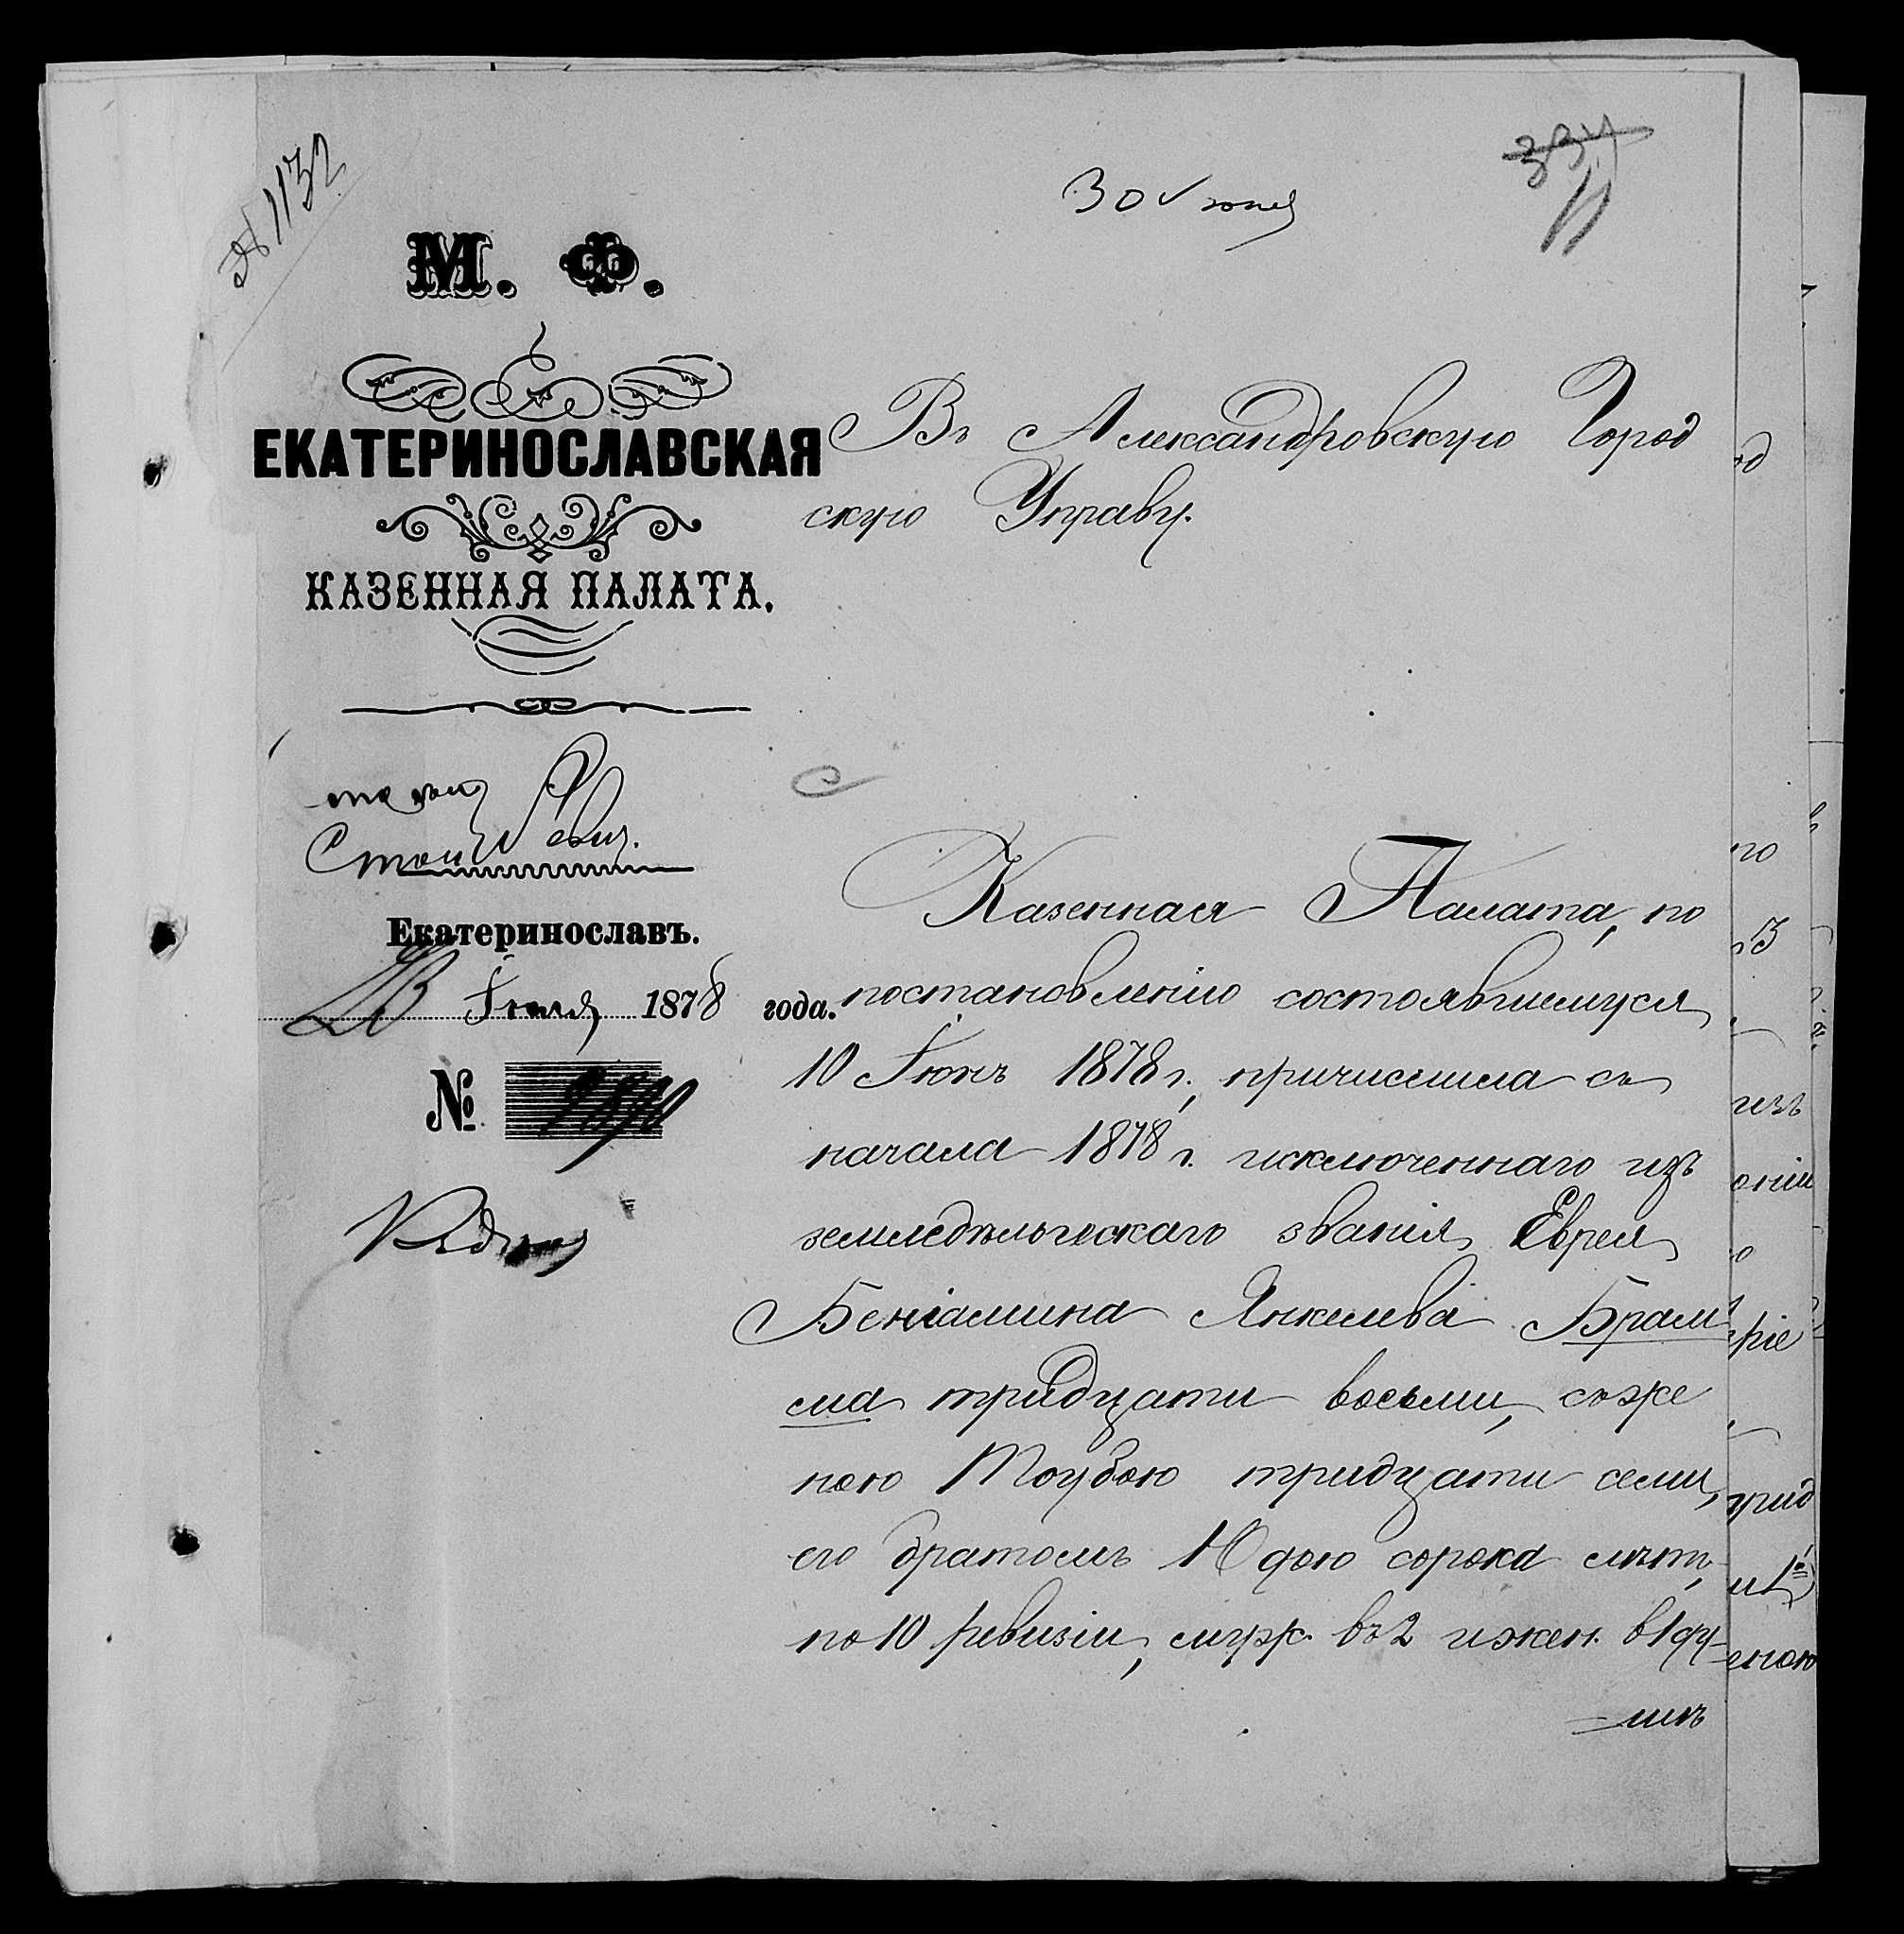 № 1132
30 Іюня
334
М. Ф.
ЕКАТЕРИНОСЛАВСКАЯ
КАЗЕННАЯ ПАЛАТА.
Екатеринославъ.
1878 года.
№
Въ Александровскую Город
скую Управу.
Казенная Палата, по
постановленію состоявшемуся
10 Іюнь 1878 г., причислила съ
начала 1878 г. исключеннаго изъ
земледѣльческаго званія Еврея
Беніамина Янкелева Брам
сма тридцати восьми, съ же
ною Тоубою тридцати семи,
его братомъ Юдою сорока лѣтъ,
по 10 ревизіи, муж. въ 2 и жен. в 1 ду-
шѣ